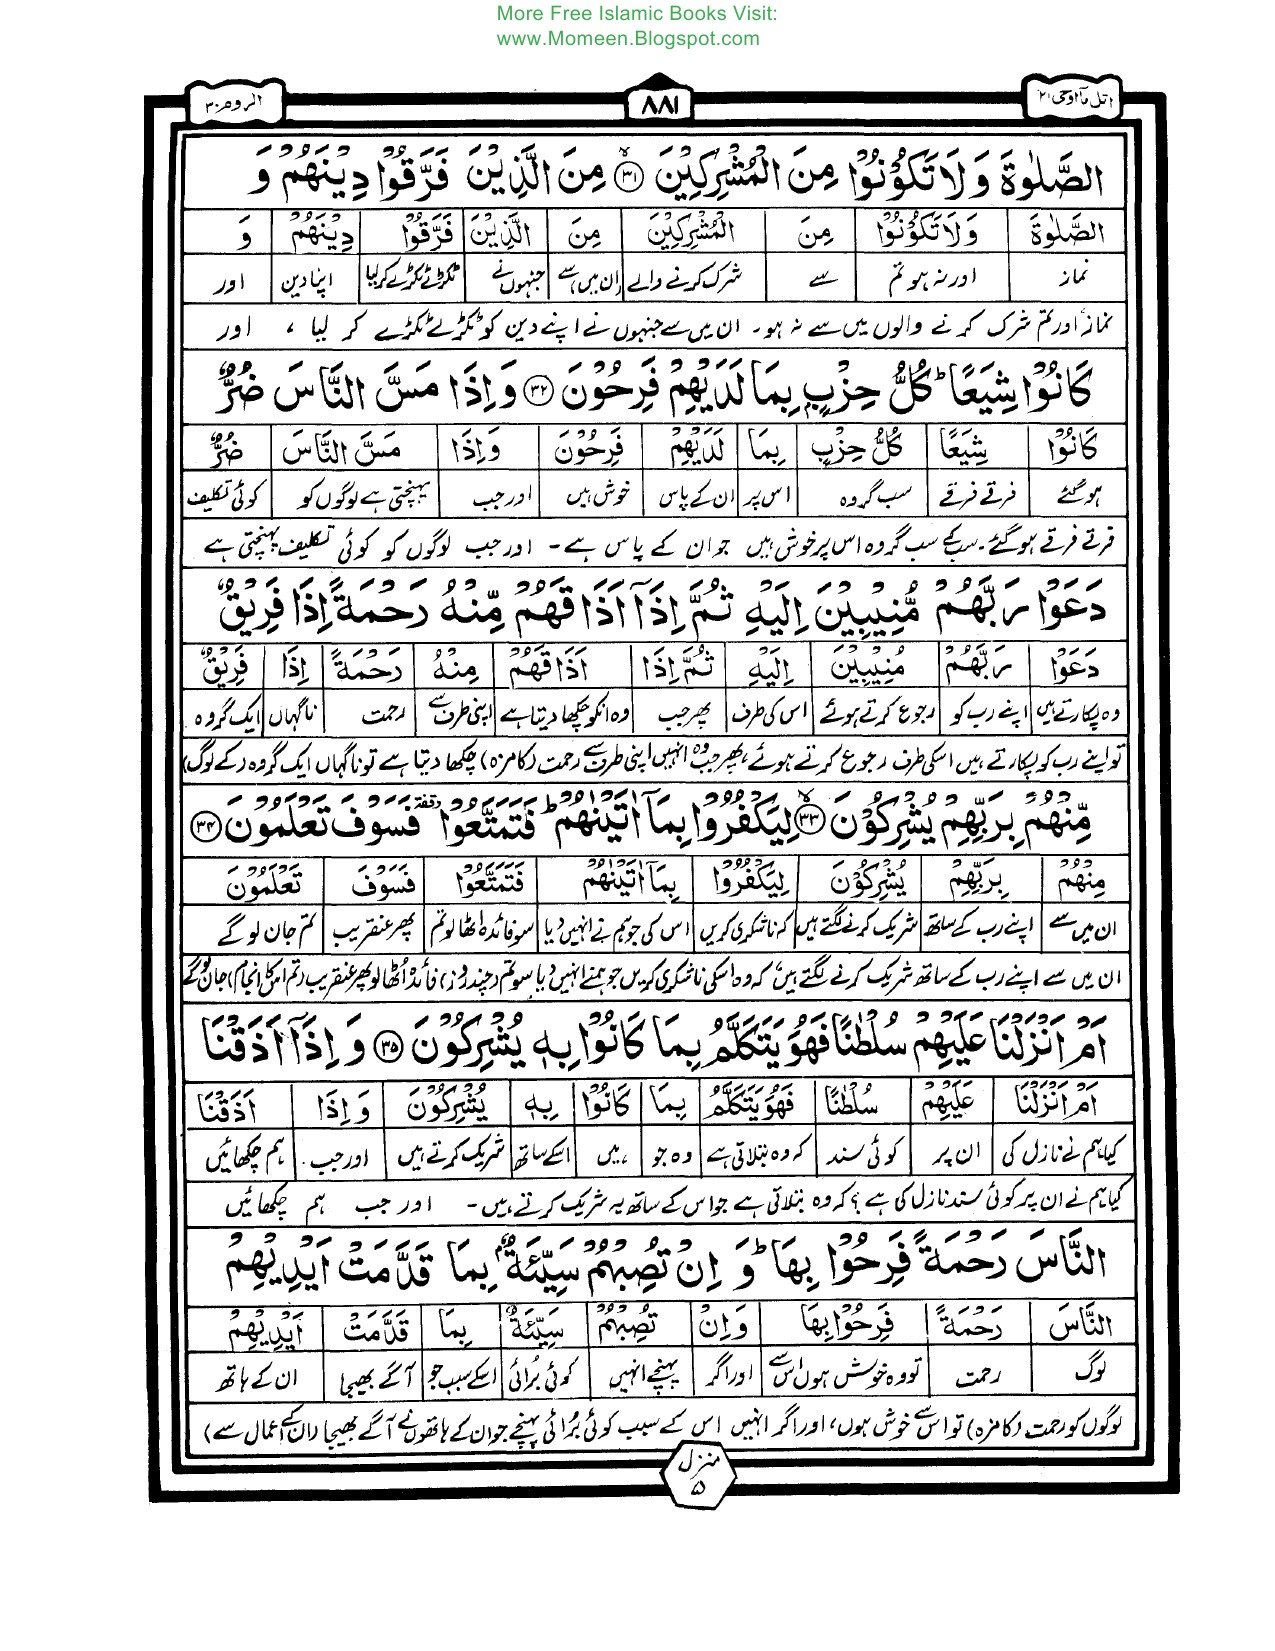 More Free Islamic Books Visit:
www.Momeen.Blogspot.com
اتل مآاوحی۲۱ ۸۸۱ الروم۳۰
الصَّلٰوةَ وَلَا تَكُوْنُوْا مِنَ الْمُشْرِكِيْنَ ۳۱ مِنَ الَّذِيْنَ فَرَّقُوْا دِيْنَهُمْ وَ
الصَّلٰوةَ وَلَا تَكُوْنُوْا مِنَ الْمُشْرِكِيْنَ مِنَ الَّذِيْنَ فَرَّقُوْا دِيْنَهُمْ وَ
نماز اور نہ ہو تم سے شرک کرنے والے ان میں سے جنہوں نے ٹکڑے ٹکڑے کر لیا اپنا دین اور
نماز، اور تم شرک کرنے والوں میں سے نہ ہو۔ ان میں سے جنہوں نے اپنے دین کو ٹکڑے ٹکڑے کر لیا ، اور
كَانُوْا شِيَعًا ط كُلُّ حِزْبٍۭ بِمَا لَدَيْهِمْ فَرِحُوْنَ ۳۲ وَاِذَا مَسَّ النَّاسَ ضُرٌّ
كَانُوْا شِيَعًا كُلُّ حِزْبٍ بِمَا لَدَيْهِمْ فَرِحُوْنَ وَاِذَا مَسَّ النَّاسَ ضُرٌّ
ہو گئے فرقے فرقے سب گروہ اس پر ان کے پاس خوش ہیں اور جب پہنچتی ہے لوگوں کو کوئی تکلیف
فرقے فرقے ہو گئے۔ سب کے سب گروہ اس پر خوش ہیں جو ان کے پاس ہے۔ اور جب لوگوں کو کوئی تکلیف پہنچتی ہے
دَعَوْا رَبَّهُمْ مُّنِيْبِيْنَ اِلَيْهِ ثُمَّ اِذَآ اَذَاقَهُمْ مِّنْهُ رَحْمَةً اِذَا فَرِيْقٌ
دَعَوْا رَبَّهُمْ مُنِيْبِيْنَ اِلَيْهِ ثُمَّ اِذَا اَذَاقَهُمْ مِنْهُ رَحْمَةً اِذَا فَرِيْقٌ
وہ پکارتے ہیں اپنے رب کو رجوع کرتے ہوئے اس کی طرف پھر جب وہ انکو چکھا دیتا ہے اپنی طرف سے رحمت ناگہاں ایک گروہ
تو اپنے رب کو پکارتے ہیں اسکی طرف رجوع کرتے ہوئے، پھر جب وہ انہیں اپنی طرف سے رحمت (کا مزہ) چکھا دیتا ہے تو ناگہاں ایک گروہ (کے لوگ)
مِّنْهُمْ بِرَبِّهِمْ يُشْرِكُوْنَ ۳۳ لِيَكْفُرُوْا بِمَآ اٰتَيْنٰهُمْ ط فَتَمَتَّعُوْا وقفة فَسَوْفَ تَعْلَمُوْنَ ۳۴
مِنْهُمْ بِرَبِّهِمْ يُشْرِكُوْنَ لِيَكْفُرُوْا بِمَآ اٰتَيْنٰهُمْ فَتَمَتَّعُوْا فَسَوْفَ تَعْلَمُوْنَ
ان میں سے اپنے رب کے ساتھ شریک کرنے لگتے ہیں کہ ناشکری کریں اس کی جو ہم نے انہیں دیا سو فائدہ اٹھا لو تم پھر عنقریب تم جان لو گے
ان میں سے اپنے رب کے ساتھ شریک کرنے لگتے ہیں، کہ وہ اسکی ناشکری کریں جو ہمنے انہیں دیا سو تم (چند روز) فائدہ اُٹھا لو پھر عنقریب (تم اس کا انجام) جان لوگے
اَمْ اَنْزَلْنَا عَلَيْهِمْ سُلْطٰنًا فَهُوَ يَتَكَلَّمُ بِمَا كَانُوْا بِهٖ يُشْرِكُوْنَ ۳۵ وَاِذَآ اَذَقْنَا
اَمْ اَنْزَلْنَا عَلَيْهِمْ سُلْطٰنًا فَهُوَ يَتَكَلَّمُ بِمَا كَانُوْا بِهٖ يُشْرِكُوْنَ وَاِذَا اَذَقْنَا
کیا ہم نے نازل کی ان پر کوئی سند کہ وہ بتلاتی ہے وہ جو ہیں اسکے ساتھ شریک کرتے ہیں اور جب ہم چکھائیں
کیا ہم نے ان پر کوئی سند نازل کی ہے؟ کہ وہ بتلاتی ہے جو اس کے ساتھ یہ شریک کرتے ہیں۔ اور جب ہم چکھائیں
النَّاسَ رَحْمَةً فَرِحُوْا بِهَا ط وَاِنْ تُصِبْهُمْ سَيِّئَةٌۢ بِمَا قَدَّمَتْ اَيْدِيْهِمْ
النَّاسَ رَحْمَةً فَرِحُوْا بِهَا وَاِنْ تُصِبْهُمْ سَيِّئَةٌۢ بِمَا قَدَّمَتْ اَيْدِيْهِمْ
لوگ رحمت تو وہ خوش ہوں اس سے اور اگر پہنچے انہیں کوئی بُرائی اسکے سبب جو آگے بھیجا ان کے ہاتھ
لوگوں کو رحمت (کا مزہ) تو اس سے خوش ہوں، اور اگر انہیں اس کے سبب کوئی بُرائی پہنچے جو ان کے ہاتھوں نے آگے بھیجا (ان کے اعمال سے)
منزل
۵